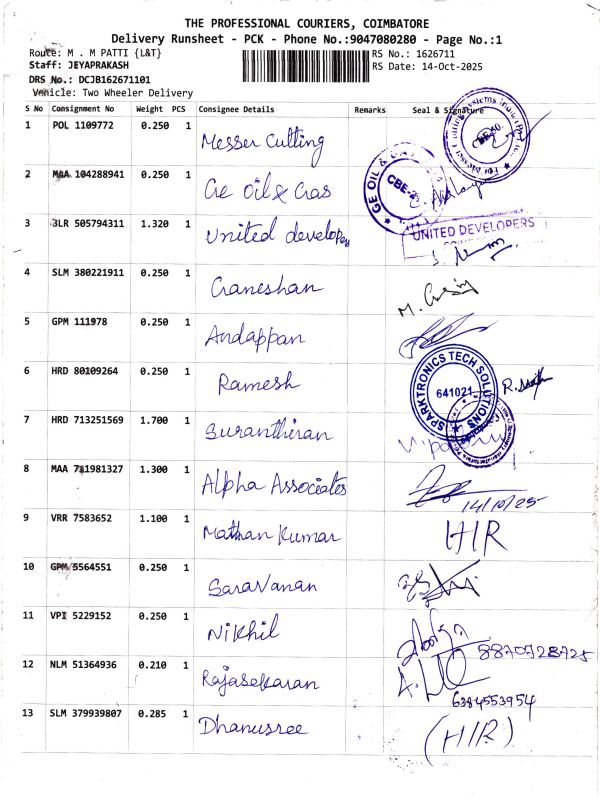 THE PROFESSIONAL COURIERS, COIMBATORE
Delivery Runsheet - PCK - Phone No.:9047080280 - Page No.:1
Route: M . M PATTI {L&T} RS No.: 1626711
Staff: JEYAPRAKASH RS Date: 14-Oct-2025
DRS No.: DCJB162671101
Vehicle: Two Wheeler Delivery
S No Consignment No Weight PCS Consignee Details Remarks Seal & Signature
1 POL 1109772 0.250 1 Messer Cutting
2 MAA 104288941 0.250 1 Ge Oil & Gas GE OIL & CBE-2
3 BLR 505794311 1.320 1 United developers UNITED DEVELOPERS
4 SLM 380221911 0.250 1 Ganeshan
5 GPM 111978 0.250 1 Andappan
6 HRD 80109264 0.250 1 Ramesh SPARKTRONICS TECH SOLUTIONS 641021
7 HRD 713251569 1.700 1 Suranthiran
8 MAA 731981327 1.300 1 Alpha Associates 14/10/25
9 VRR 7583652 1.100 1 Mathan Kumar H/R
10 GPM 5564551 0.250 1 Saravanan
11 VPI 5229152 0.250 1 Nikhil 8870728725
12 NLM 51364936 0.210 1 Rajasekaran 6384553954
13 SLM 379939807 0.285 1 Dhanusree (H/R)